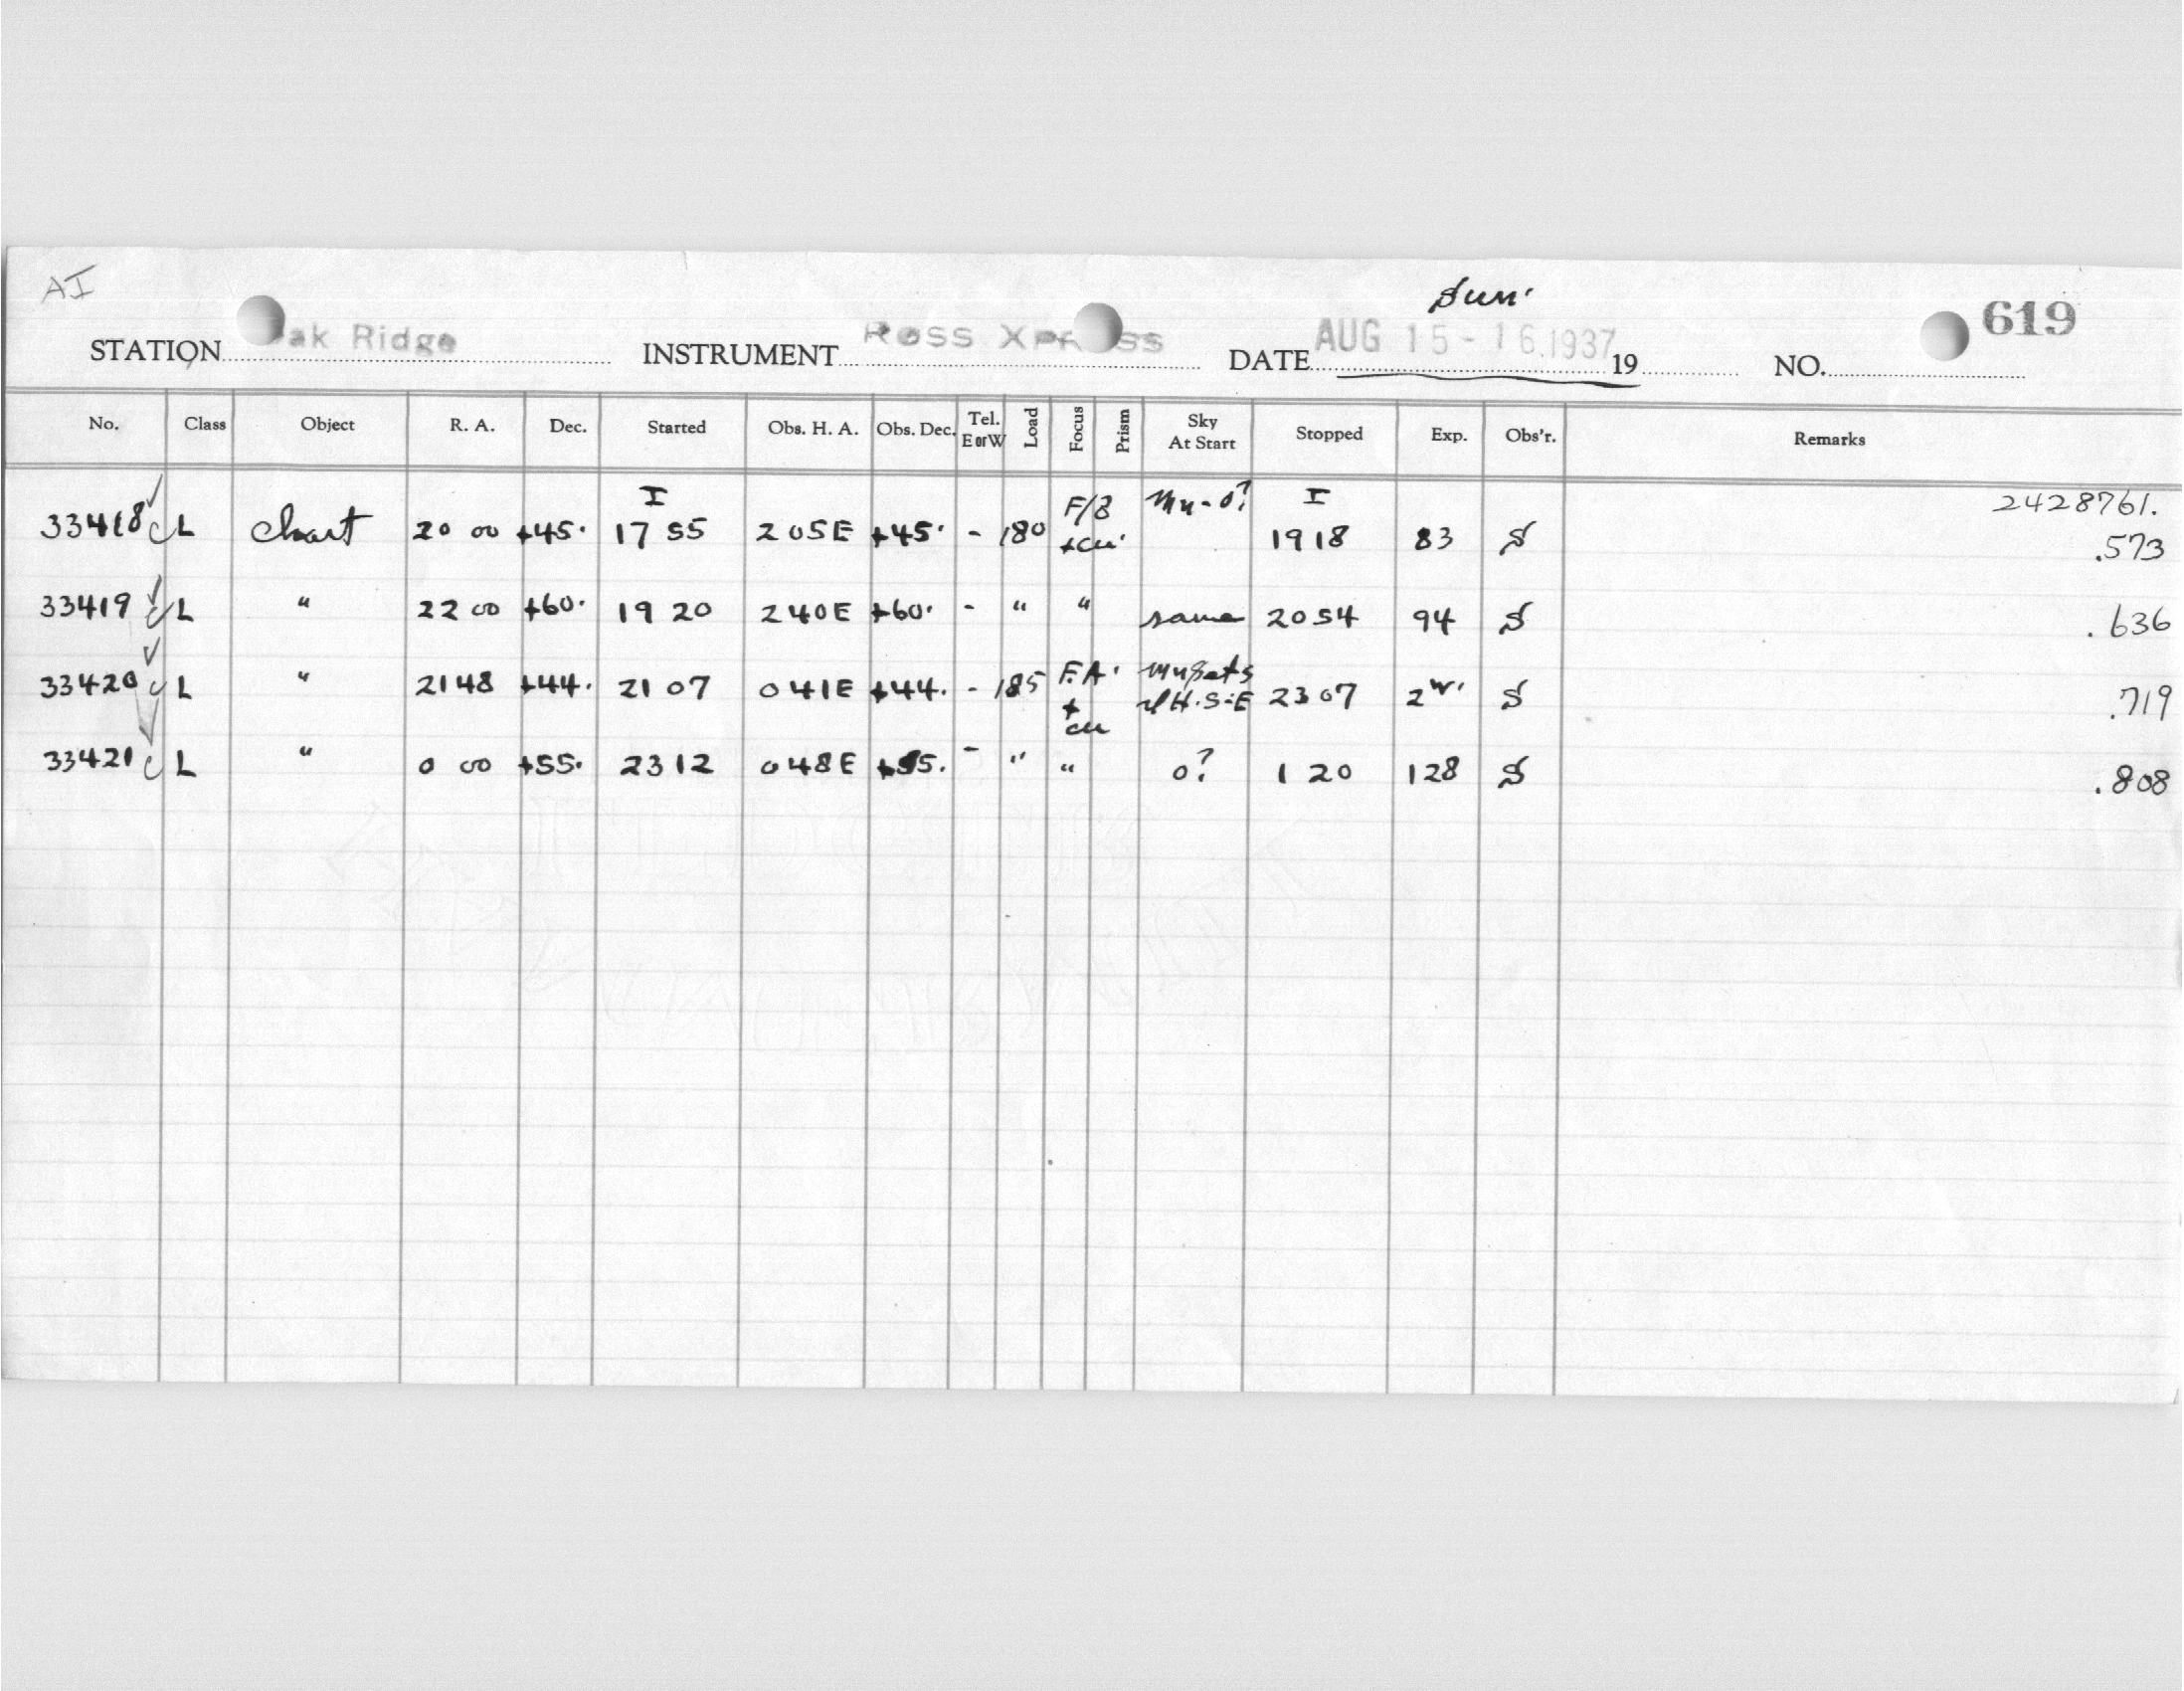 AI
Sun.
STATION ak Ridge INSTRUMENT Ross Xpr ss DATE AUG 15-16.1937 19 NO. 619
No. Class Object R. A. Dec. Started Obs. H. A. Obs. Dec. Tel. E or W Load Focus Prism Sky At Start Stopped Exp. Obs'r. Remarks
I F/8 Mn-0? I 2428761.
33418 c L chart 20 00 +45. 17 55 2 05E +45. - 180 +cu. 19 18 83 S .573
33419 c L " 22 00 +60. 19 20 2 40E +60. - " " same 20 54 94 S .636
33420 c L " 21 48 +44. 21 07 0 41E +44. - 185 F.A. + cu Mn sets H.S.E 23 07 2 .719
33421 c L " 0 00 +55. 23 12 0 48E +55. - " " 0? 1 20 128 S .808